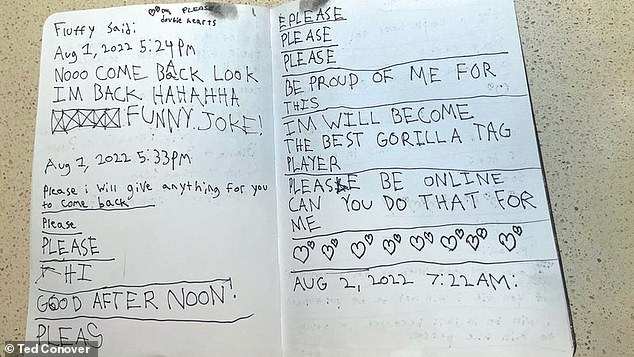 PLEASE
double hearts
1
Fluffy Said:
Aug 1, 2022 5:24 Pm
NOOO COME BACK LOOK
IM BACK HAHAHHA
FUNNY JOKE!
Aug 1, 2022 5:33pm
Please i will give anything for you
to come back
Please
PLEASE
HI
GOOD AFTER NOON!
PLEAS
E PLEASE
PLEASE
PLEASE
BE PROUD OF ME FOR
THIS
IM WILL BECOME
THE BEST GORILLA TAG
PLAYER
PLEASE BE ONLINE
CAN YOU DO THAT FOR
ME
AUG 2, 2022 7:22AM:
© Ted Conover